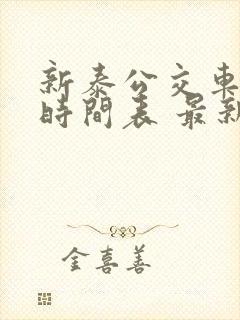 新泰公交車
時間表 最新
金喜善